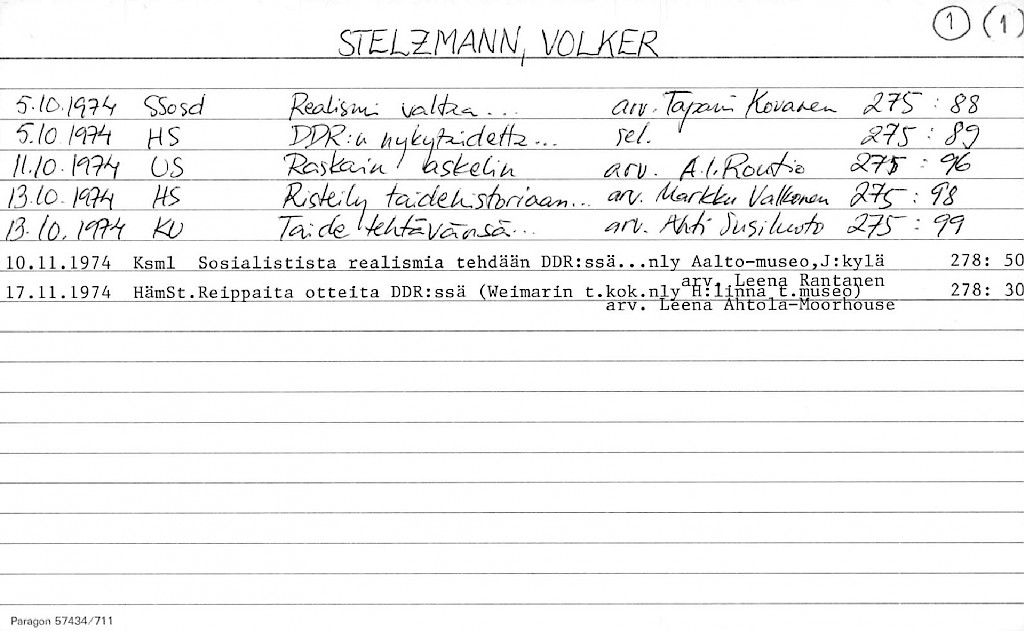 ① (1)
STELZMANN, VOLKER
5.10.1974 SSosd Realismi valtaa... arv. Tapani Kovanen 275 : 88
5.10.1974 HS DDR:n nykytaidetta... sel. 275 : 89
11.10.1974 US Raskain askelin arv. A.I. Routio 275 : 96
13.10.1974 HS Risteily taidehistoriaan... arv. Markku Valkonen 275 : 98
13.10.1974 KU Taide tehtävänsä... arv. Ahti Susiluoto 275 : 99
10.11.1974 Ksml Sosialistista realismia tehdään DDR:ssä...nly Aalto-museo,J:kylä 278: 50
arv. Leena Rantanen
17.11.1974 HämSt.Reippaita otteita DDR:ssä (Weimarin t.kok.nly H:linna t.museo) 278: 30
arv. Leena Ahtola-Moorhouse
Paragon 57434/711